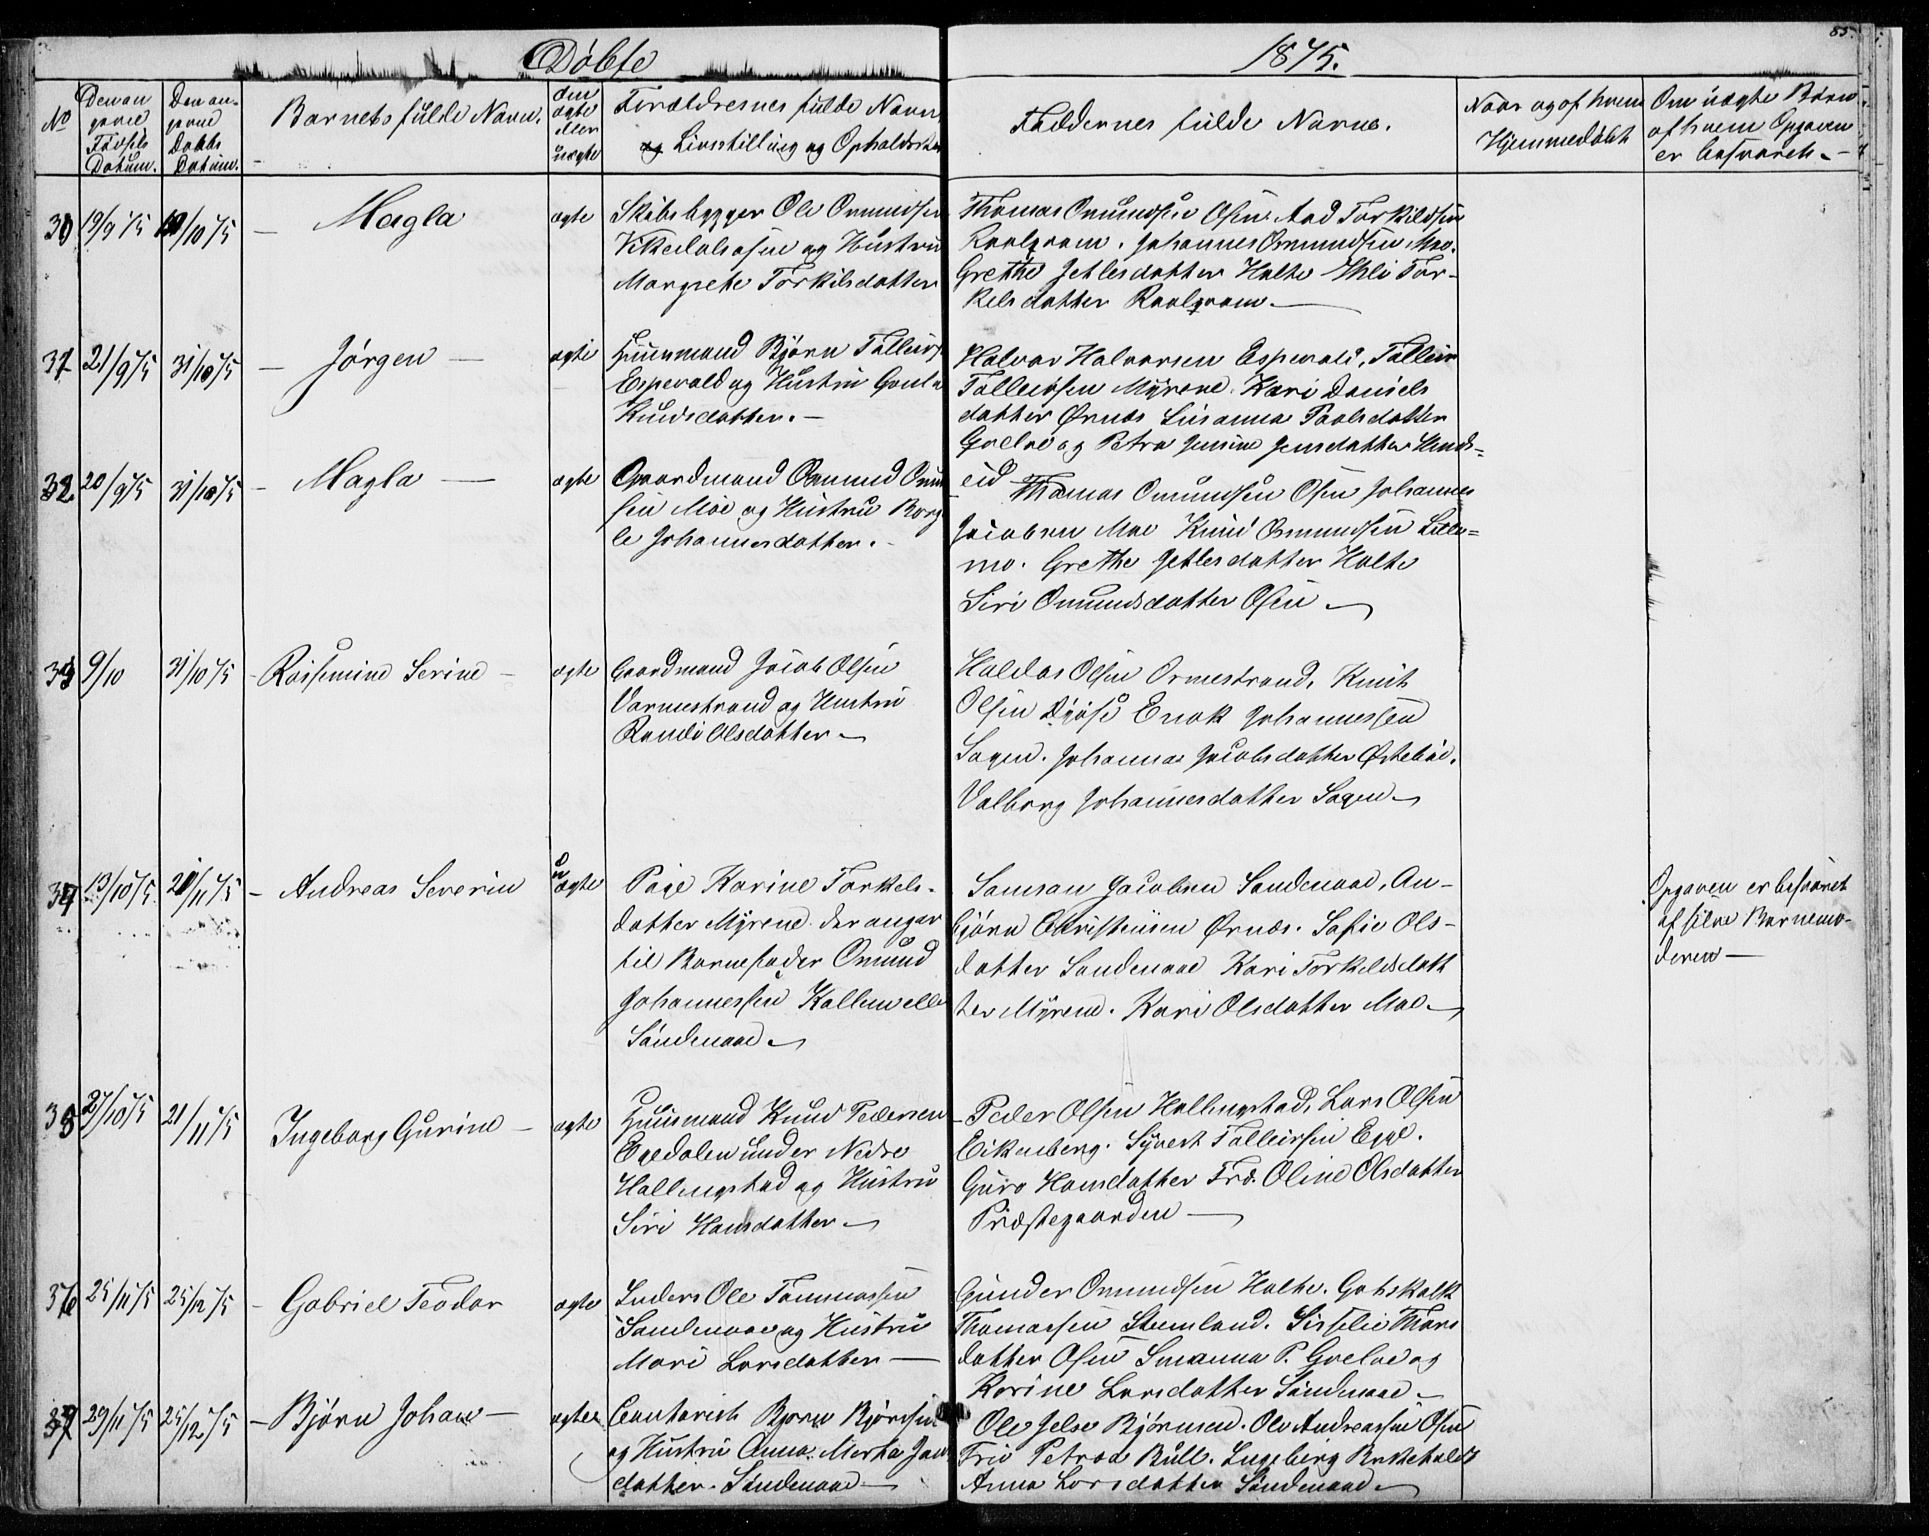 Døbte
1875.
85.
No
Den an
givne
Fødsels
Datum.
Den an-
givne
Daabs
Datum.
Barnets fulde Navn.
Om
ægte
eller
uægte
Forældrenes fulde Navne
og Livsstilling og Opholdssted
Faddernes fulde Navne.
Naar og af hvem
Hjemmedøbt
Om uægte Børn
af hvem Opgaven
er besvaret. —
30 19/9 75 10/10 75 — Magla ægte Skibsbygger Ole Omundsen
Vikedalsosen og Hustru
Margrete Torkilsdatter
Thomas Omundsen Osen. Aad Torkildsen
Johannes Omundsen Moe.
Grethe Jetlesdatter Holte Tor-
kelsdatter
31 21/9 75 31/10 75 — Jørgen — ægte Huusmand Bjørn Tolleivs
Espevold og Hustru
Knudsdatter. —
Halvor Halvorsen Espevold, Tolleiv
Tolleivsen Myrene. Kari Daniels
datter Ørnes Susanna Paalsdatter
og Petra Jensine Jensdatter
eid
32 20/9 75 31/10 75 — Magla — ægte Gaardmand Omund Omun
sen Moe og Hustru Borg
le Johannesdatter. —
Thomas Omundsen Osen Johannes
Jacobsen Moe Knud Omundsen Lille-
mo. Grethe Jetlesdatter Holte
Siri Omundsdatter Osen —
33 9/10 31/10 75 — Rassmine Serine — ægte Gaardmand Jacob Olsen
Vormestrand og Hustru
Randi Olsdatter —
Haldor Olsen Ormestrand, Knut
Olsen Enok Johannessen
Sagen. Johanna Jacobsdatter Østebøe.
Valborg Johannesdatter Sagen —
34 13/10 75 21/11 75 — Andreas Severin uægte Pige Karine Torkels-
datter Myrene der angav
til Barnefader Omund
Johannessen Kallem elle
Søndenaae —
Samson Jacobsen Søndenaae, An-
bjørn Christensen Ørnes. Sofie Ols-
datter Søndenaae Kari Torkeldsdatt
ter Myrene. Kari Olsdatter Moe —
Opgaven er besvaret
af selve Barnemo-
deren —
35 27/10 75 21/11 75 Ingeborg Gurine — ægte Huusmand Knud Pedersen
Eqedalen under Nedre
Hallingstad og Hustru
Siri Hansdatter —
Peder Olsen Hallingstad, Lars Olsen
Eikenberg. Syvert Tolleivsen Egge.
Guro Hansdatter Frd. Oline Olsdatter
Præstegaarden —
36 25/11 75 25/12 75 — Gabriel Teodor ægte Inders Ole Tommassen
Søndenaae og Hustru
Mari Larsdatter —
Gunder Omundsen Holte. Gotskalk
Thomassen Stumland. Sisselie Thors
datter Osen Susanna P. og
Karine Larsdatter Søndenaae —
37 29/11 75 25/12 75 — Bjørn Johan — ægte Bjørn Bjørnsen
og Hustru Anna Marta Jan
datter. Søndenaae —
Ole Jelse Bjørnsen. Ole Andreassen Osen
Petrea Bull. Ingeborg
Anna Larsdatter Søndenaae —